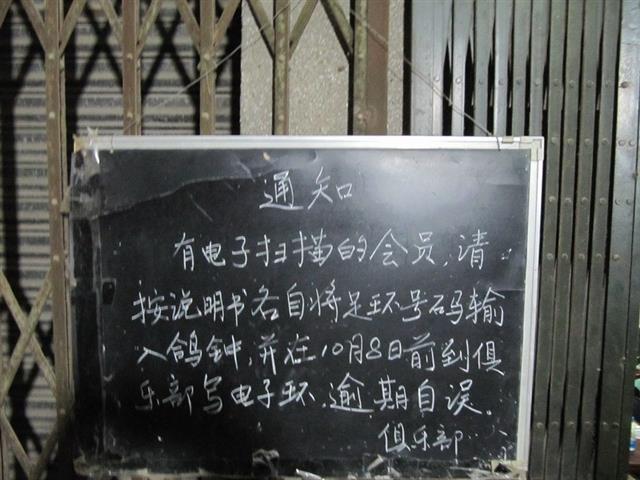 通知
有电子扫描的会员,请
按说明书各自将足环号码输
入鸽钟,并在10月8日前到俱
乐部写电子环.逾期自误。
俱乐部